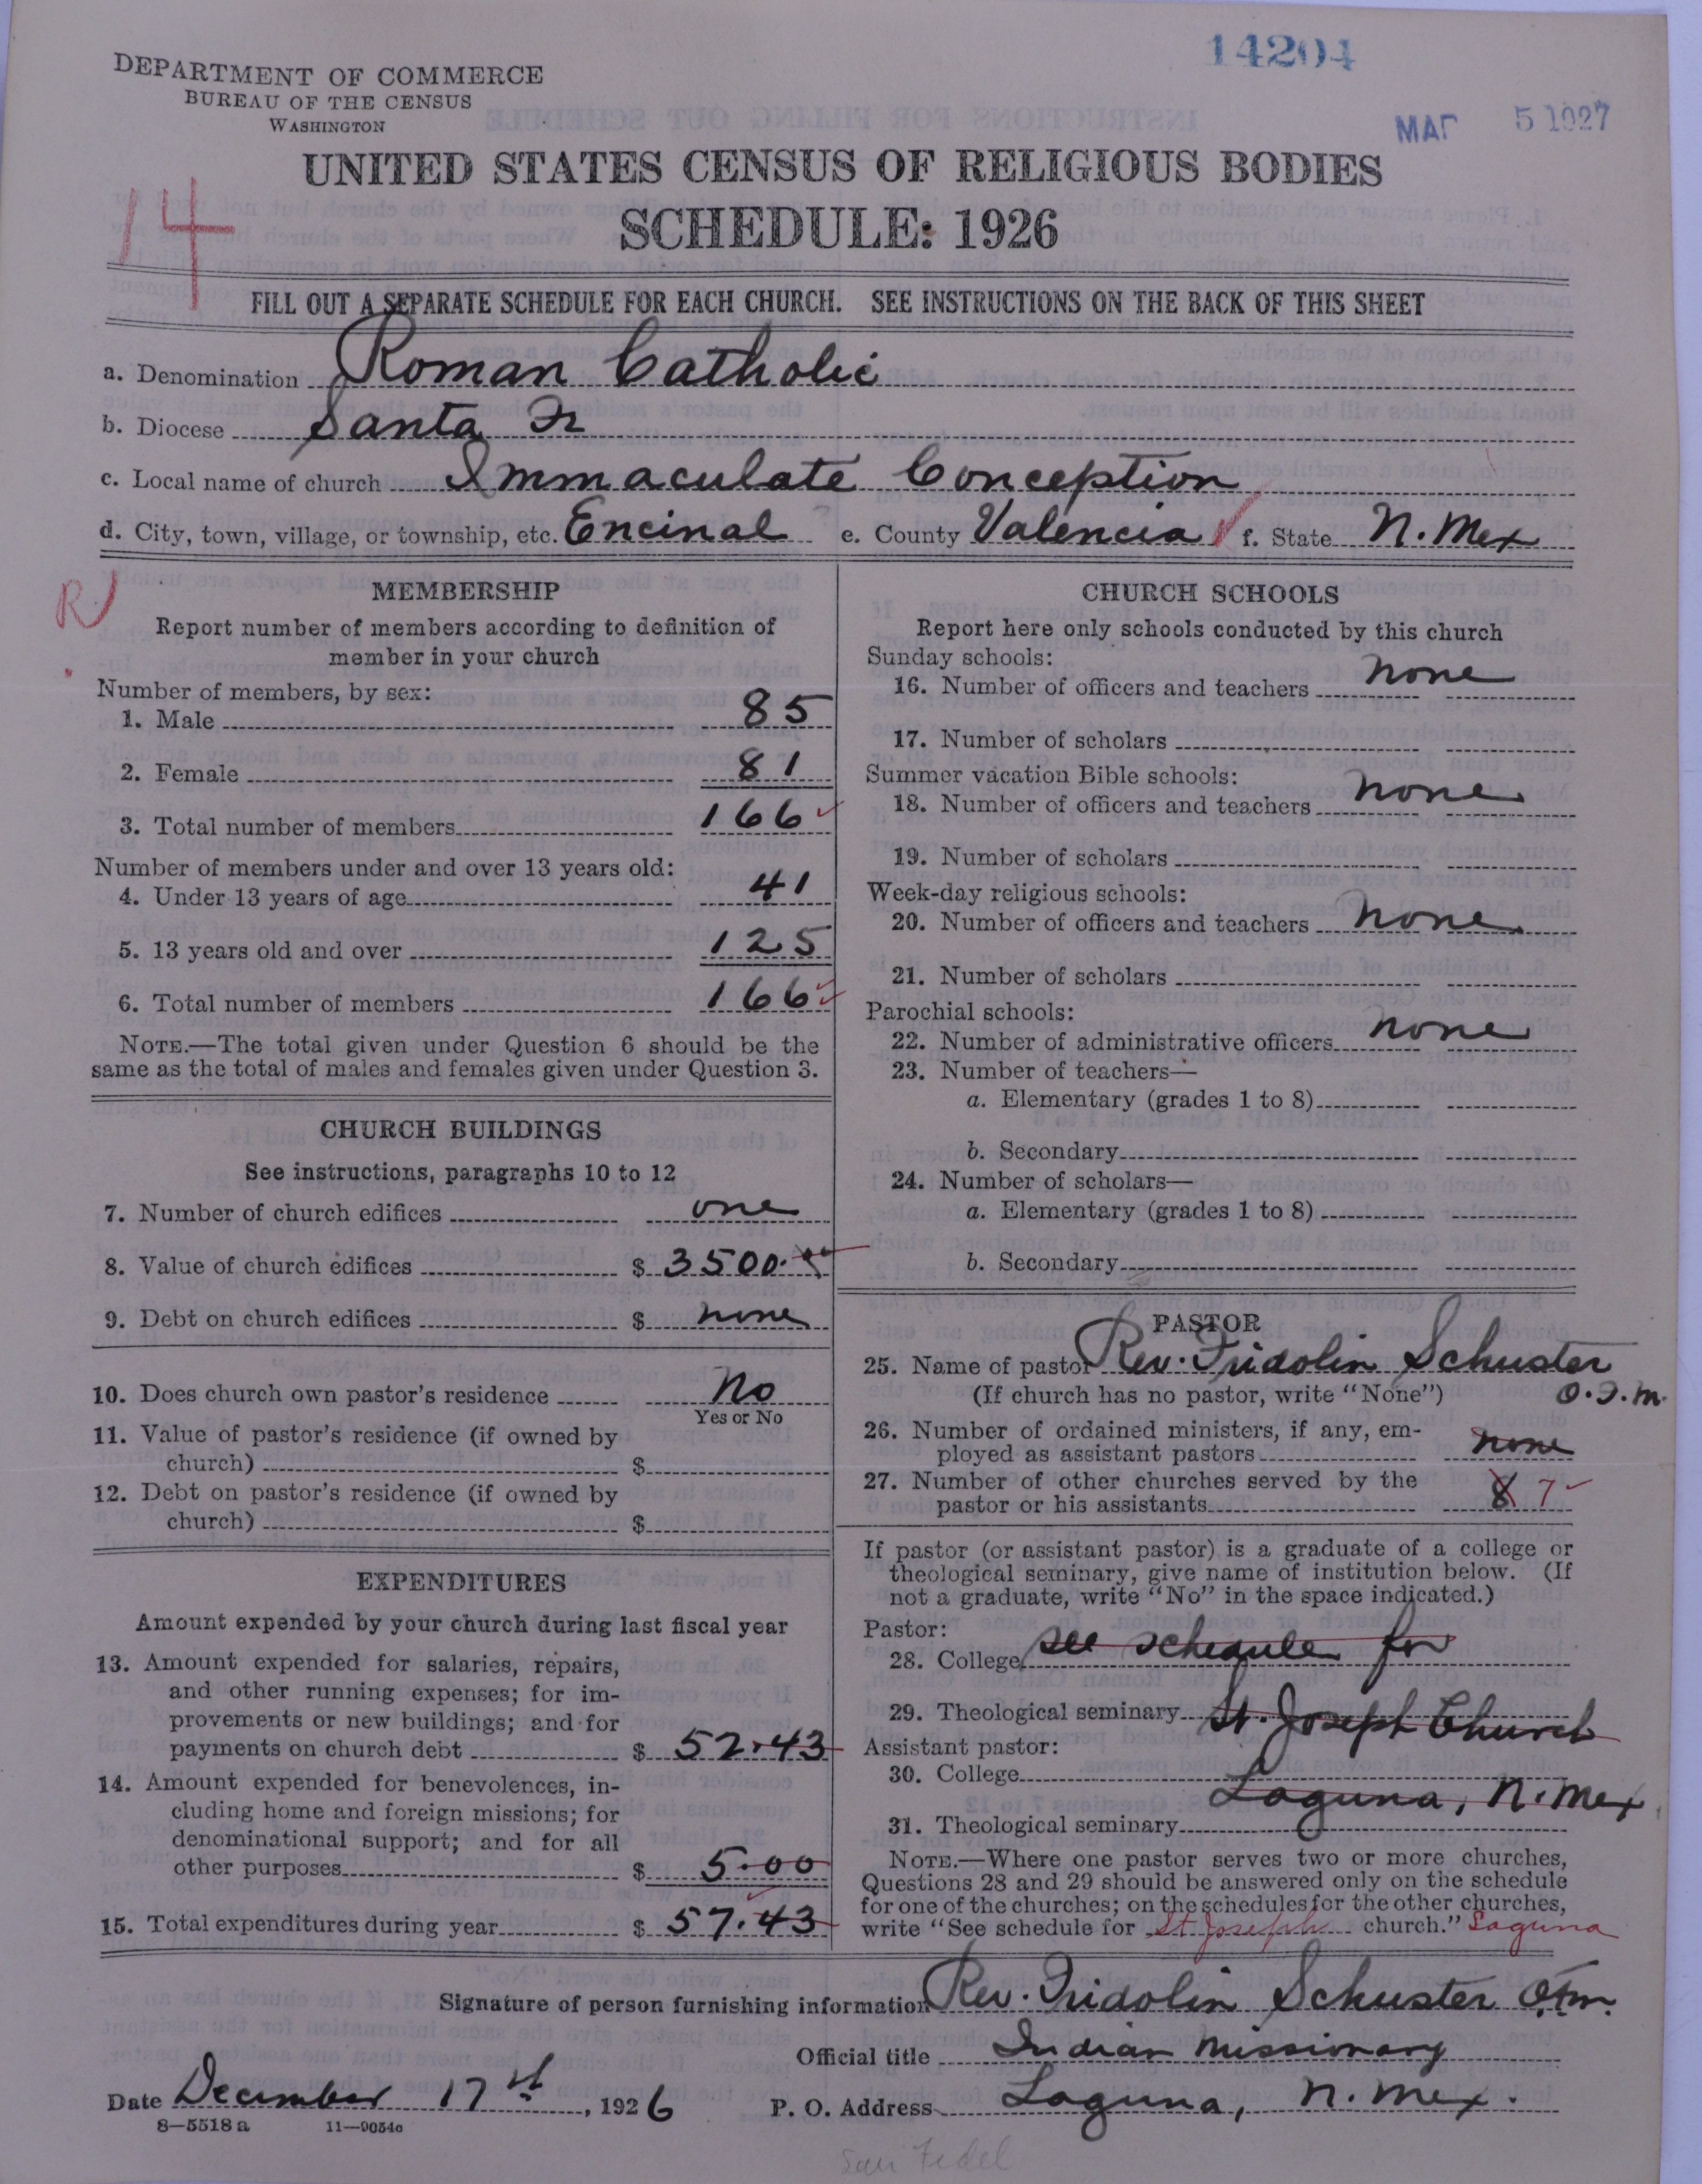 14204
DEPARTMENT OF COMMERCE
BUREAU OF THE CENSUS
WASHINGTON
MAR 5 1927
UNITED STATES CENSUS OF RELIGIOUS BODIES
14
SCHEDULE: 1926
FILL OUT A SEPARATE SCHEDULE FOR EACH CHURCH. SEE INSTRUCTIONS ON THE BACK OF THIS SHEET
a. Denomination Roman Catholic
b. Diocese Santa Fe
c. Local name of church Immaculate Conception
d. City, town, village, or township, etc. Encinal e. County Valencia f. State N. Mex
R
MEMBERSHIP
Report number of members according to definition of
member in your church
Number of members, by sex:
1. Male 85
2. Female 81
3. Total number of members 166
Number of members under and over 13 years old:
4. Under 13 years of age 41
5. 13 years old and over 125
6. Total number of members 166
NOTE.—The total given under Question 6 should be the
same as the total of males and females given under Question 3.
CHURCH BUILDINGS
See instructions, paragraphs 10 to 12
7. Number of church edifices one
8. Value of church edifices $ 3500.
9. Debt on church edifices $ none
10. Does church own pastor's residence No
Yes or No
11. Value of pastor's residence (if owned by
church) $
12. Debt on pastor's residence (if owned by
church) $
EXPENDITURES
Amount expended by your church during last fiscal year
13. Amount expended for salaries, repairs,
and other running expenses; for im-
provements or new buildings; and for
payments on church debt $ 52.43
14. Amount expended for benevolences, in-
cluding home and foreign missions; for
denominational support; and for all
other purposes $ 5.00
15. Total expenditures during year $ 57.43
CHURCH SCHOOLS
Report here only schools conducted by this church
Sunday schools:
16. Number of officers and teachers none
17. Number of scholars
Summer vacation Bible schools:
18. Number of officers and teachers none
19. Number of scholars
Week-day religious schools:
20. Number of officers and teachers none
21. Number of scholars
Parochial schools:
22. Number of administrative officers none
23. Number of teachers—
a. Elementary (grades 1 to 8)
b. Secondary
24. Number of scholars—
a. Elementary (grades 1 to 8)
b. Secondary
PASTOR
25. Name of pastor Rev. Fridolin Schuster
(If church has no pastor, write "None") O.F.M.
26. Number of ordained ministers, if any, em-
ployed as assistant pastors none
27. Number of other churches served by the
pastor or his assistants 8 7
If pastor (or assistant pastor) is a graduate of a college or
theological seminary, give name of institution below. (If
not a graduate, write "No" in the space indicated.)
Pastor:
28. College see schedule for
29. Theological seminary St. Joseph Church
Assistant pastor:
30. College Laguna, N. Mex.
31. Theological seminary
NOTE.—Where one pastor serves two or more churches,
Questions 28 and 29 should be answered only on the schedule
for one of the churches; on the schedules for the other churches,
write "See schedule for St Joseph church." Laguna
Signature of person furnishing information Rev. Fridolin Schuster O.F.M.
Official title Indian Missionary
Date December 17th, 1926 P. O. Address Laguna, N. Mex.
8—5518a 11—9054a
San Fedel